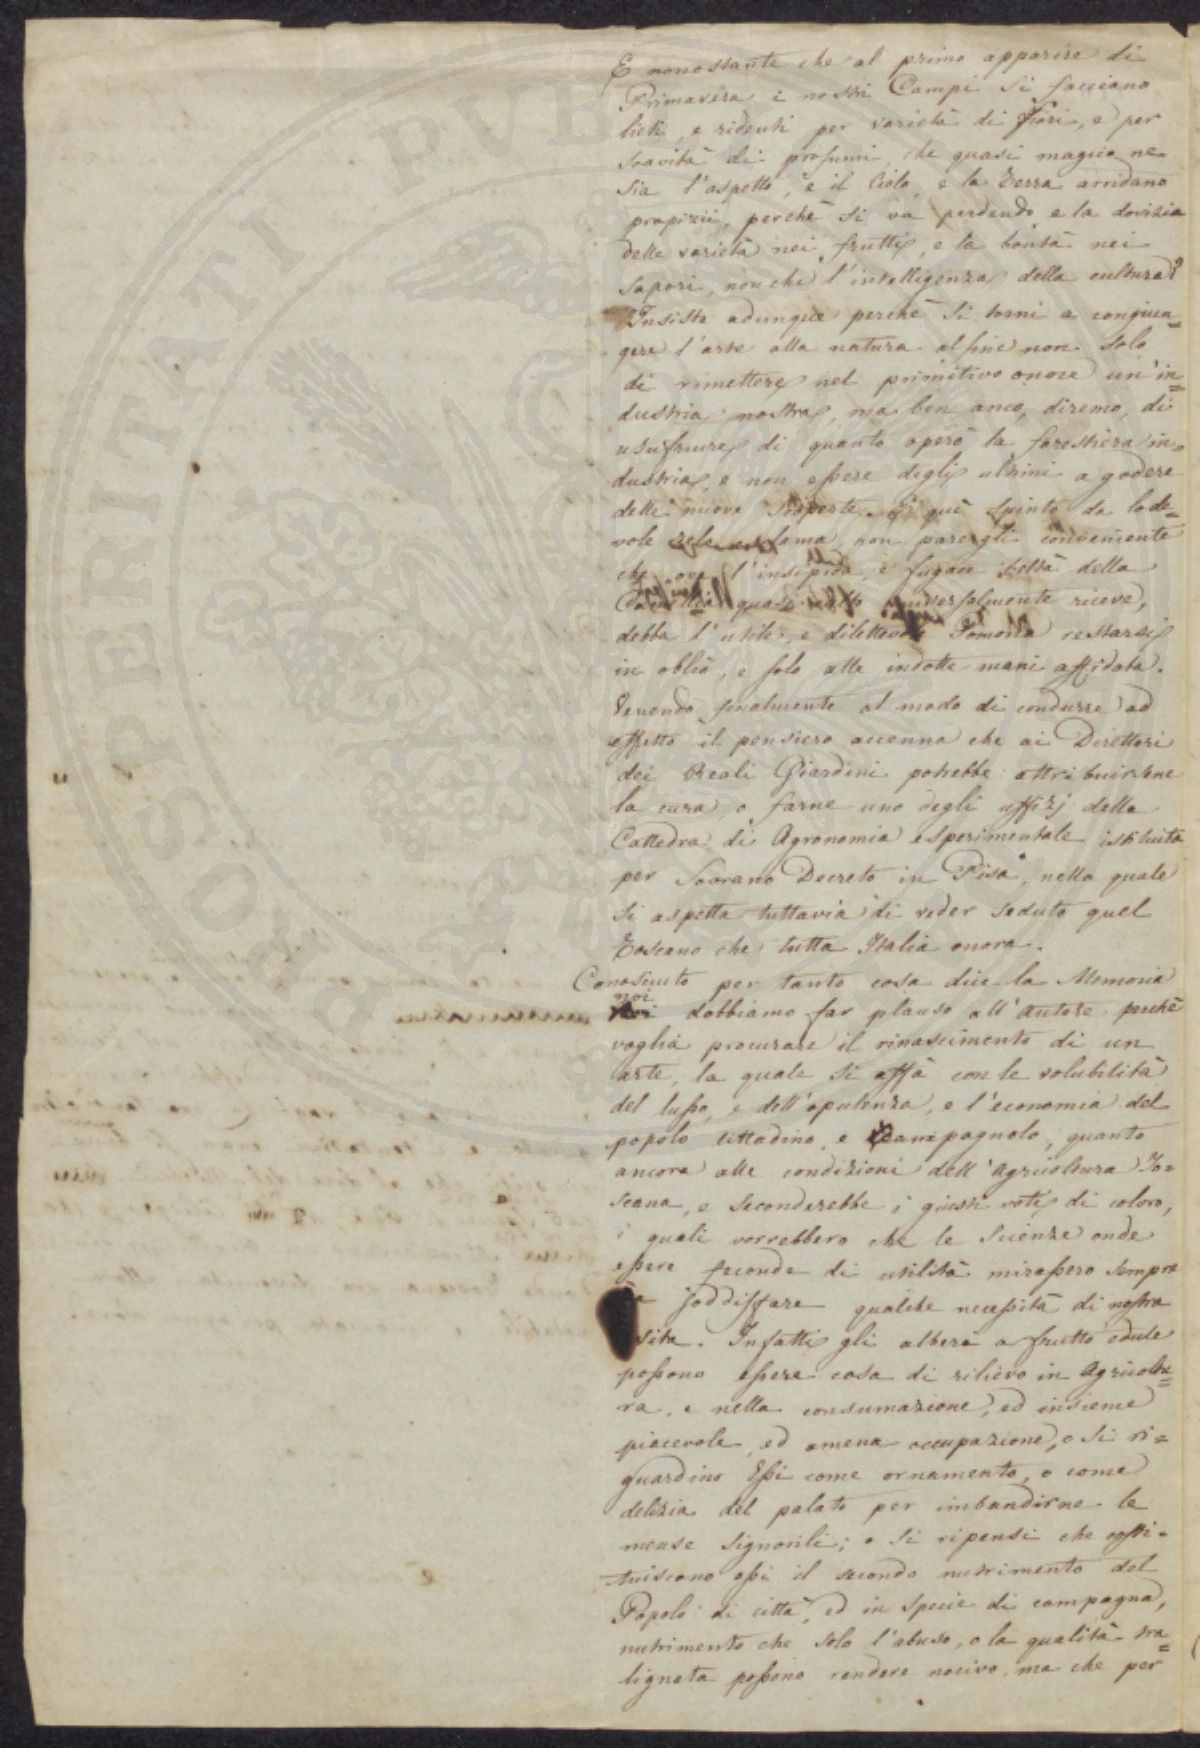 E nonostante che al primo apparire di
Primavera i nostri Campi si facciano
lieti, e ridenti per varietà di Fiori, e per
soavità di profumi, che quasi magico ne
sia l'aspetto, e il Cielo, e la Terra arridano
propizii, perchè si và perdendo e la dovizia
delle varietà nei frutti, e la bontà nei
sapori, non che l'intelligenza della cultura?
Insiste adunque perchè si torni a congiun=
gere l'arte alla natura al fine non solo
di rimettere nel primitivo onore un'in=
dustria nostra, ma ben anco, diremo, di
usufruire di quanto operò la forestiera in=
dustria, e non essere degli ultimi a godere
delle nuove scoperte. E quì spinto da lode=
vole zelo esclama, non parergli conveniente
che ove l'insipida, e fugace beltà della
Camellia quasi culto universalmente riceve,
debba l'utile, e dilettevole Pomona restarsi
in oblìo, e solo alle indotte mani affidata.
Venendo finalmente al modo di condurre ad
effetto il pensiero accenna che ai Direttori
dei Reali Giardini potrebbe attribuirsene
la cura, o farne uno degli uffizj della
Cattedra di Agronomia esperimentale istituita
per Sovrano Decreto in Pisa, nella quale
si aspetta tuttavia di veder seduto quel
Toscano che tutta Italia onora.
Conosciuto per tanto cosa dice la Memoria
noi
dobbiamo far plauso all'Autore perchè
voglia procurare il rinascimento di un
arte, la quale si affà con le volubilità
del lusso, e dell'opulenza, e l'economia del
popolo cittadino, e Campagnolo, quanto
ancora alle condizioni dell'Agricoltura To=
scana, e seconderebbe i giusti voti di coloro,
i quali vorrebbero che le Scienze onde
essere feconde di utilità mirassero sempre
a soddisfare qualche necessità di nostra
vita. Infatti gli alberi a frutto edule
possono essere cosa di rilievo in Agricoltu=
ra, e nella consumazione, ed insieme
piacevole, ed amena occupazione, o si ri=
guardino Essi come ornamento, o come
delizia del palato per imbandirne le
mense signorili; o si ripensi che costi=
tuiscono essi il secondo nutrimento del
Popolo di città, ed in specie di campagna,
nutrimento che solo l'abuso, o la qualità tra=
lignata possono rendere nocivo, ma che per